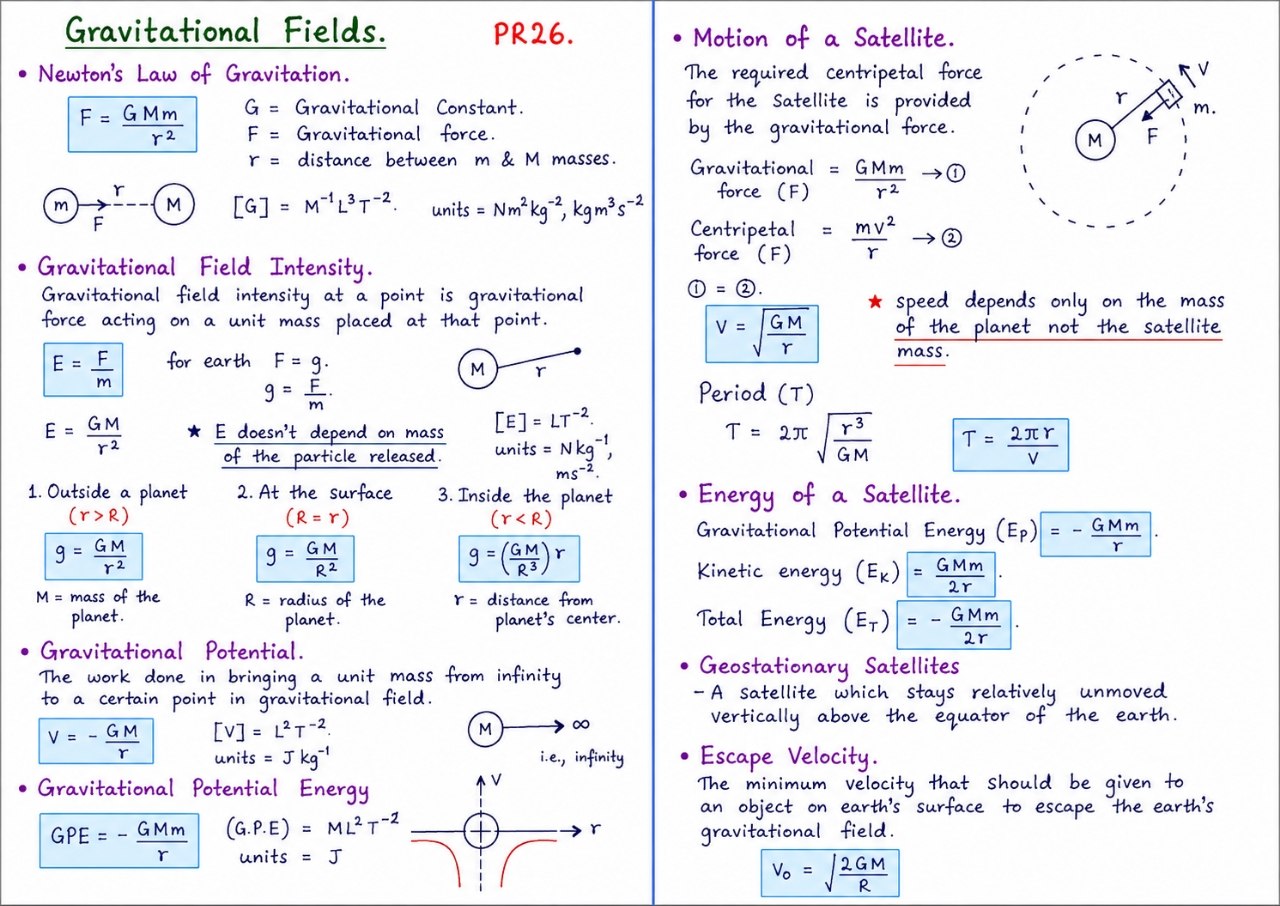 Gravitational Fields. PR26.
• Newton's Law of Gravitation.
F = GMm / r²
G = Gravitational Constant.
F = Gravitational force.
r = distance between m & M masses.
m r F M
[G] = M⁻¹L³T⁻². units = Nm²kg⁻², kgm³s⁻²
• Gravitational Field Intensity.
Gravitational field intensity at a point is gravitational
force acting on a unit mass placed at that point.
E = F / m
for earth F = g.
g = F / m.
M r
E = GM / r²
★ E doesn't depend on mass
of the particle released.
[E] = LT⁻².
units = Nkg⁻¹,
ms⁻².
1. Outside a planet
(r > R)
g = GM / r²
M = mass of the
planet.
2. At the surface
(R = r)
g = GM / R²
R = radius of the
planet.
3. Inside the planet
(r < R)
g = (GM / R³) r
r = distance from
planet's center.
• Gravitational Potential.
The work done in bringing a unit mass from infinity
to a certain point in gravitational field.
V = - GM / r
[V] = L²T⁻².
units = J kg⁻¹
M ∞
i.e., infinity
• Gravitational Potential Energy
GPE = - GMm / r
(G.P.E) = ML²T⁻²
units = J
V
r
• Motion of a Satellite.
The required centripetal force
for the Satellite is provided
by the gravitational force.
M r F V m.
Gravitational force (F) = GMm / r² → ①
Centripetal force (F) = mv² / r → ②
① = ②.
V = √(GM / r)
★ speed depends only on the mass
of the planet not the satellite
mass.
Period (T)
T = 2π √(r³ / GM)
T = 2πr / V
• Energy of a Satellite.
Gravitational Potential Energy (Eₚ) = - GMm / r.
Kinetic energy (E_K) = GMm / 2r.
Total Energy (E_T) = - GMm / 2r.
• Geostationary Satellites
- A satellite which stays relatively unmoved
vertically above the equator of the earth.
• Escape Velocity.
The minimum velocity that should be given to
an object on earth's surface to escape the earth's
gravitational field.
V₀ = √(2GM / R)